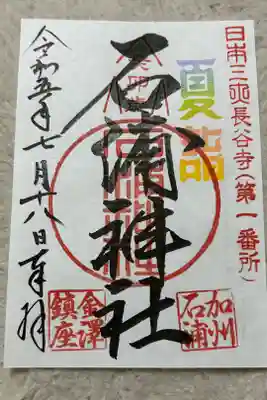 日本三大長谷寺(第一番所)
夏詣
石浦神社
加州
石浦
金澤
鎮座
令和五年七月十八日奉拝